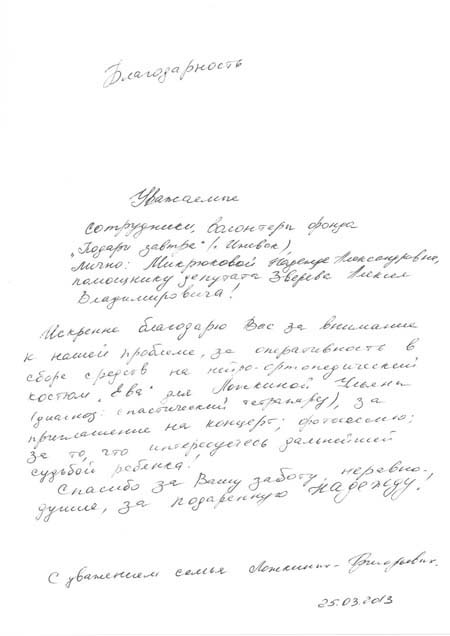 Благодарность
Уважаемые
сотрудники, волонтеры фонда
„Подари завтра" (г. Ижевск),
Лично: Микрюковой Надежде Александровне,
помощнику депутата Зверева Алексея
Владимировича!
Искренне благодарю Вас за внимание
к нашей проблеме, за оперативность в
сборе средств на нейро-ортопедический
костюм „Ева" для Ложкиной Ульяны
(диагноз: спастический тетрапарез), за
приглашение на концерт; фотосессию;
за то, что интересуетесь дальнейшей
судьбой ребенка!
Спасибо за Вашу заботу, неравно-
душие, за подаренную надежду!
С уважением семья Ложкиных-
25.03.2013